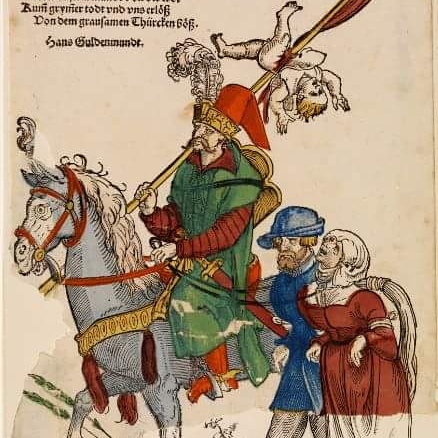 Kum̄ grym̄er todt vnd vns erlöß
Von dem grausamen Thürcken böß.
Hans Guldenmundt.